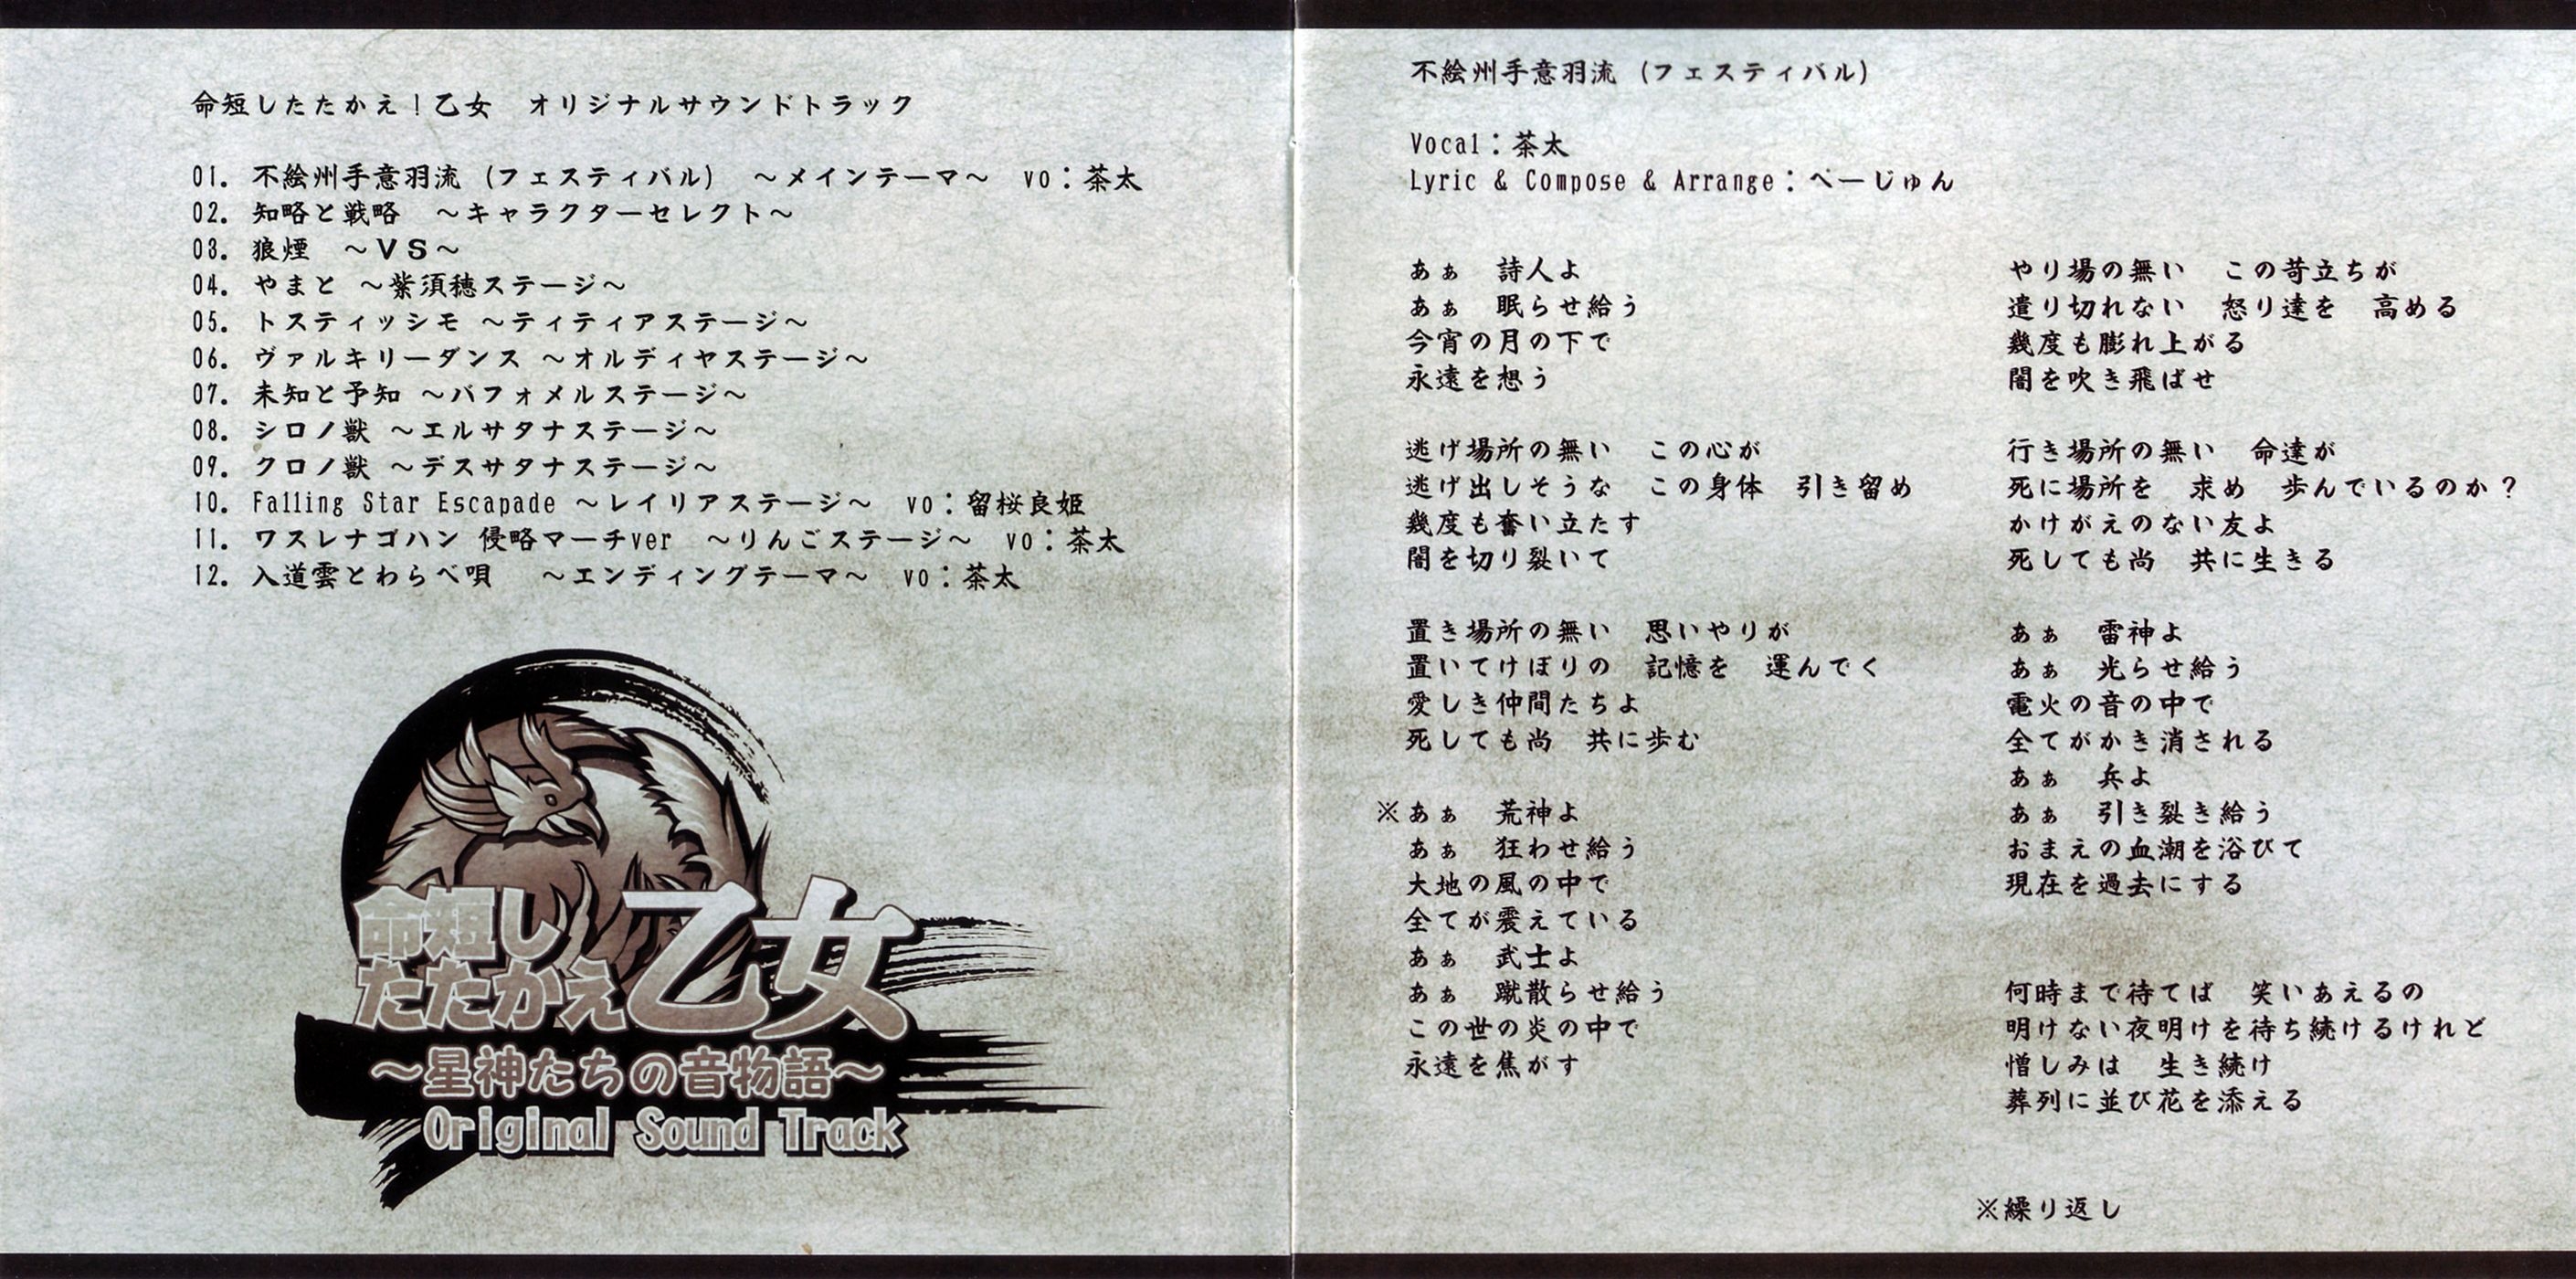 命短したたかえ！乙女　オリジナルサウンドトラック
01. 不絵州手意羽流（フェスティバル）　～メインテーマ～　vo：茶太
02. 知略と戦略　～キャラクターセレクト～
03. 狼煙　～ＶＳ～
04. やまと ～紫須穂ステージ～
05. トスティッシモ ～ティティアステージ～
06. ヴァルキリーダンス ～オルディヤステージ～
07. 未知と予知 ～バフォメルステージ～
08. シロノ獣 ～エルサタナステージ～
09. クロノ獣 ～デスサタナステージ～
10. Falling Star Escapade ～レイリアステージ～　vo：留桜良姫
11. ワスレナゴハン 侵略マーチver　～りんごステージ～　vo：茶太
12. 入道雲とわらべ唄　 ～エンディングテーマ～　vo：茶太
命短し
たたかえ乙女
～星神たちの音物語～
Original Sound Track
不絵州手意羽流（フェスティバル）
Vocal：茶太
Lyric & Compose & Arrange：ぺーじゅん
あぁ　詩人よ
あぁ　眠らせ給う
今宵の月の下で
永遠を想う
逃げ場所の無い　この心が
逃げ出しそうな　この身体　引き留め
幾度も奮い立たす
闇を切り裂いて
置き場所の無い　思いやりが
置いてけぼりの　記憶を　運んでく
愛しき仲間たちよ
死しても尚　共に歩む
※あぁ　荒神よ
あぁ　狂わせ給う
大地の風の中で
全てが震えている
あぁ　武士よ
あぁ　蹴散らせ給う
この世の炎の中で
永遠を焦がす
やり場の無い　この苛立ちが
遣り切れない　怒り達を　高める
幾度も膨れ上がる
闇を吹き飛ばせ
行き場所の無い　命達が
死に場所を　求め　歩んでいるのか？
かけがえのない友よ
死しても尚　共に生きる
あぁ　雷神よ
あぁ　光らせ給う
電火の音の中で
全てがかき消される
あぁ　兵よ
あぁ　引き裂き給う
おまえの血潮を浴びて
現在を過去にする
何時まで待てば　笑いあえるの
明けない夜明けを待ち続けるけれど
憎しみは　生き続け
葬列に並び花を添える
※繰り返し